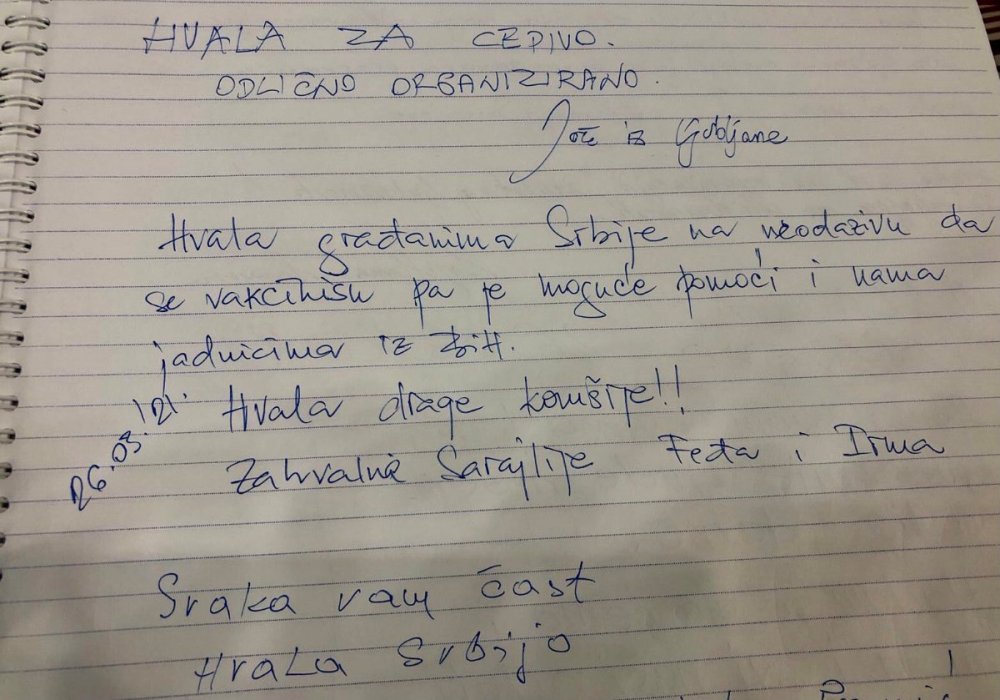 HVALA ZA CEPIVO.
ODLIČNO ORGANIZIRANO.
Jože iz Ljubljane
Hvala građanima Srbije na neodazivu da
se vakcinišu pa je moguće pomoći i nama
jadnicima iz BiH.
26.03.'21. Hvala drage komšije!!
Zahvalne Sarajlije Feđa i Irma
Svaka vam čast
Hvala Srbijo